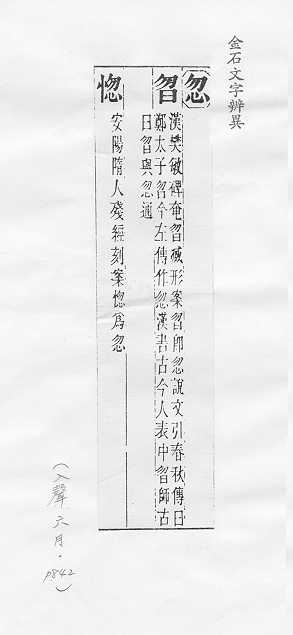 金石文字辨異
忽
曶
漢樊敏碑奄曶滅形案曶即忽說文引春秋傳曰
鄭太子曶今左傳作忽漢書古今人表中曶師古
曰曶與忽通
惚
安陽隋人殘經刻案惚爲忽
(入聲六月·p842)